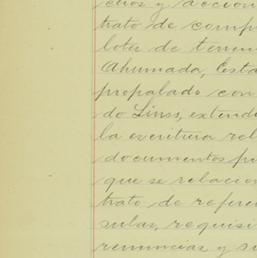 chos y accion
trato de comp
lote de terren
Ahumada, Esta
propalado con
do Linss, extende
la escritura rel
documentos pu
que se relacion
trato de refere
sulas, requisi
renuncias y su